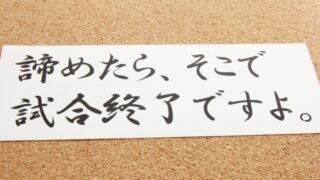 諦めたら、そこで
試合終了ですよ。